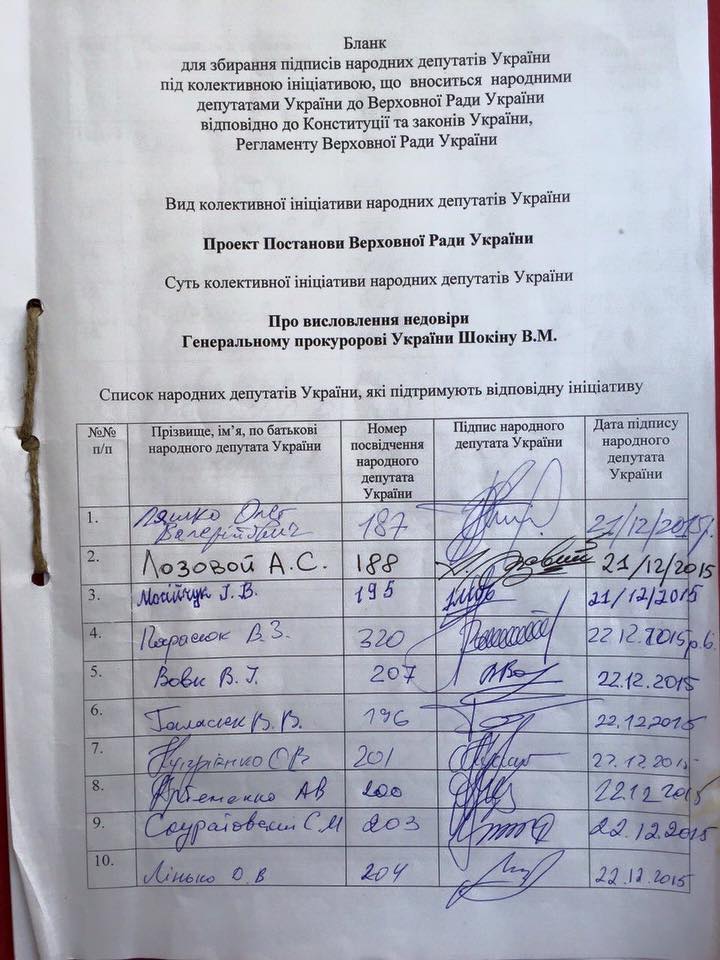 Бланк
для збирання підписів народних депутатів України
під колективною ініціативою, що вноситься народними
депутатами України до Верховної Ради України
відповідно до Конституції та законів України,
Регламенту Верховної Ради України
Вид колективної ініціативи народних депутатів України
Проект Постанови Верховної Ради України
Суть колективної ініціативи народних депутатів України
Про висловлення недовіри
Генеральному прокуророві України Шокіну В.М.
Список народних депутатів України, які підтримують відповідну ініціативу
№№ п/п Прізвище, ім’я, по батькові народного депутата України Номер посвідчення народного депутата України Підпис народного депутата України Дата підпису народного депутата України
1. Ляшко Олег Валерійович 187 21/12/2015р.
2. Лозовой А.С. 188 21/12/2015
3. Мосійчук І.В. 195 21/12/2015
4. Парасюк В.З. 320 22.12.2015р.
5. Вовк В.І. 207 22.12.2015
6. Галасюк В.В. 196 22.12.2015
7. О В 201 22.12.2015
8. Артеменко АВ 200 22.12.2015
9. С М 203 22.12.2015
10. Лінько Д.В 204 22.12.2015